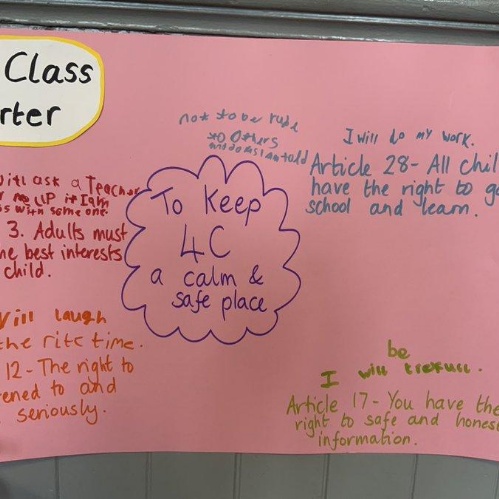 Class
rter
not to be rude
to others
and do as I am told
I will do my work.
Article 28- All chil
have the right to go
school and learn.
will ask a Teacher
UP if I am
with some one.
3. Adults must
e best interests
child.
To keep
4C
a calm &
safe place
Will laugh
the rite time.
12- The right to
ened to and
seriously.
be
I will trefull.
Article 17- You have the
right to safe and hones
information.